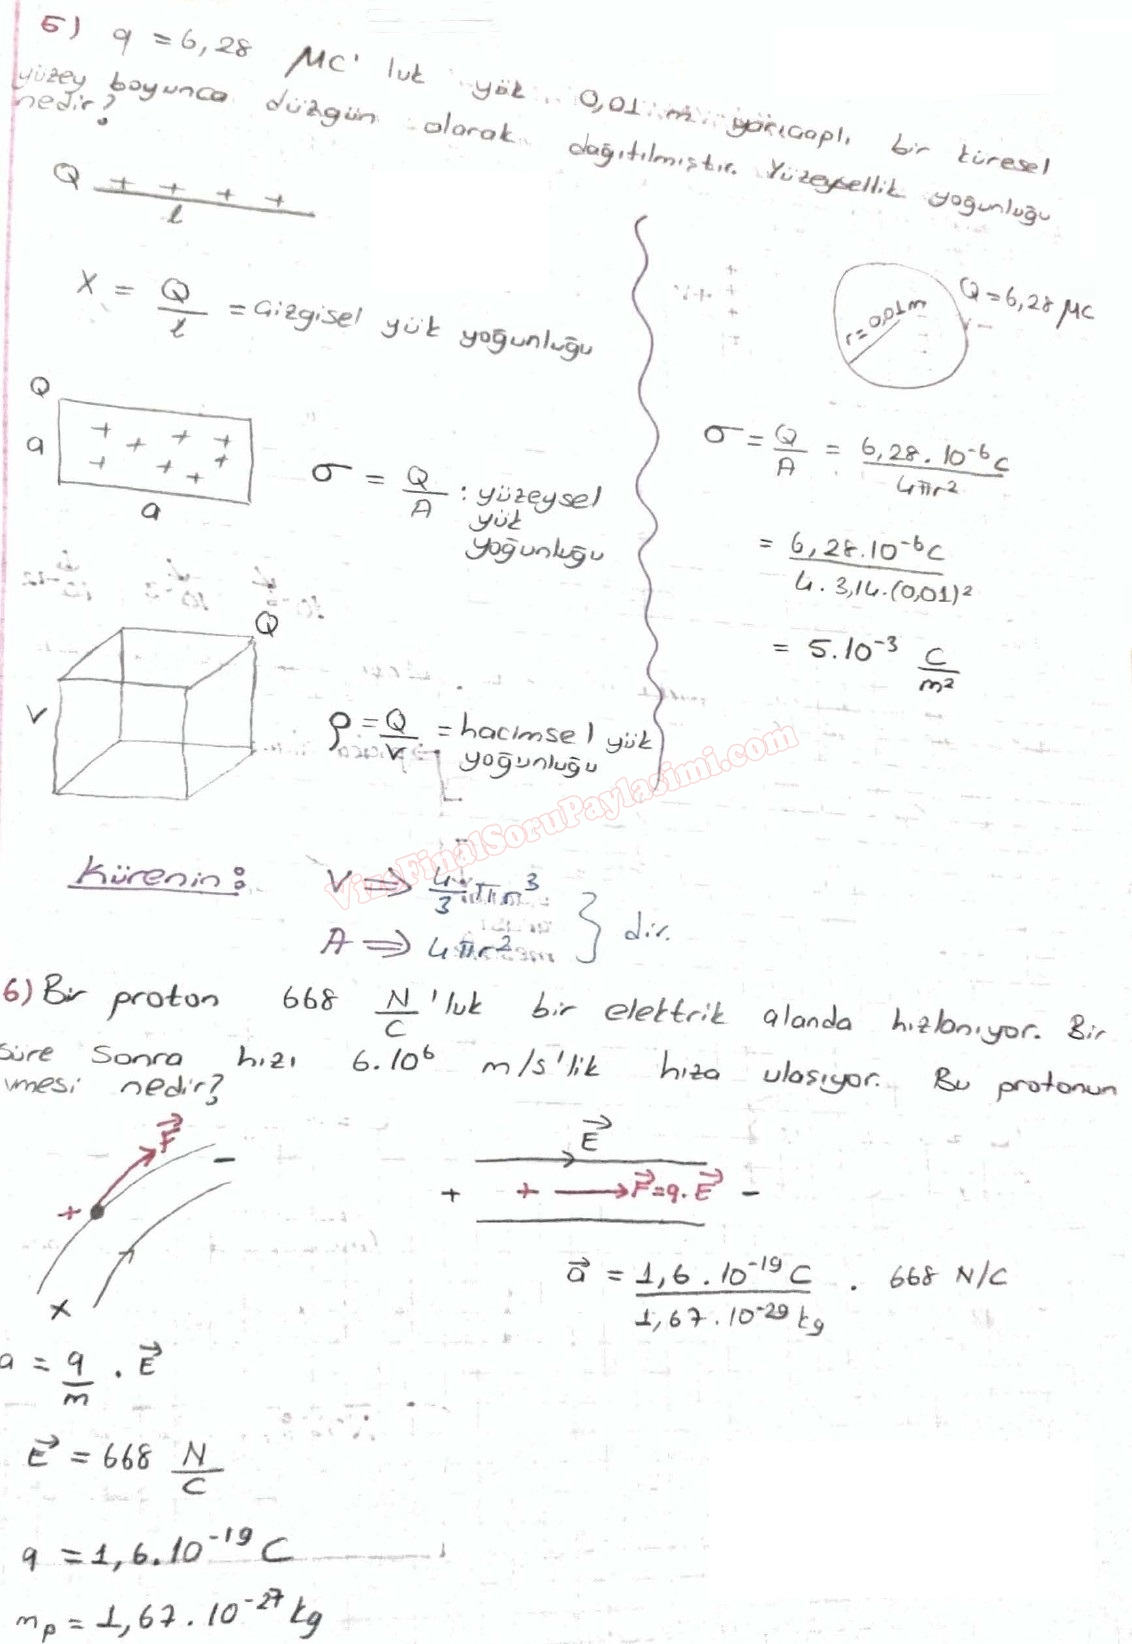 5) q = 6,28 μC' luk yük 0,01 m yarıçaplı bir küresel
yüzey boyunca düzgün olarak dağıtılmıştır. Yüzeysellik yoğunluğu
nedir?
Q + + + +
l
X = Q/l = Çizgisel yük yoğunluğu
Q
a
+ + + + + + + +
a
σ = Q/A : yüzeysel
yük
yoğunluğu
Q
V
ρ = Q/V = hacimsel yük
yoğunluğu
r=0,01m
Q = 6,28 μC
σ = Q/A = 6,28.10⁻⁶C / 4πr²
= 6,28.10⁻⁶C / 4.3,14.(0,01)²
= 5.10⁻³ C/m²
VizeFinalSoruPaylasimi.com
Kürenin:
V ⇒ 4/3 πr³
A ⇒ 4πr²
} dir.
6) Bir proton 668 N/C 'luk bir elektrik alanda hızlanıyor. Bir
süre sonra hızı 6.10⁶ m/s'lik hıza ulaşıyor. Bu protonun
ivmesi nedir?
F⃗
+
-
X
E⃗
+ + F⃗=q.E⃗ -
a⃗ = 1,6.10⁻¹⁹C / 1,67.10⁻²⁹kg . 668 N/C
a = q/m . E⃗
E⃗ = 668 N/C
q = 1,6.10⁻¹⁹ C
mp = 1,67.10⁻²⁷ kg